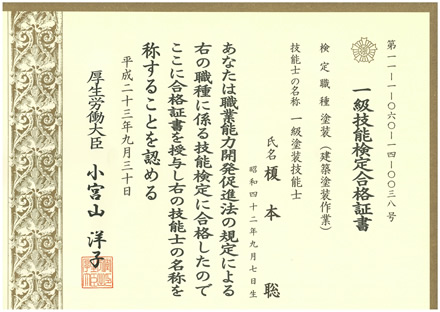 第一一-一-〇六〇-一四-〇〇三八号
一級技能検定合格証書
検定職種 塗装(建築塗装作業)
技能士の名称 一級塗装技能士
氏名 榎本 聡
昭和四十二年九月七日生
あなたは職業能力開発促進法の規定による
右の職種に係る技能検定に合格したので
ここに合格証書を授与し右の技能士の名称を
称することを認める
平成二十三年九月三十日
厚生労働大臣 小宮山 洋子